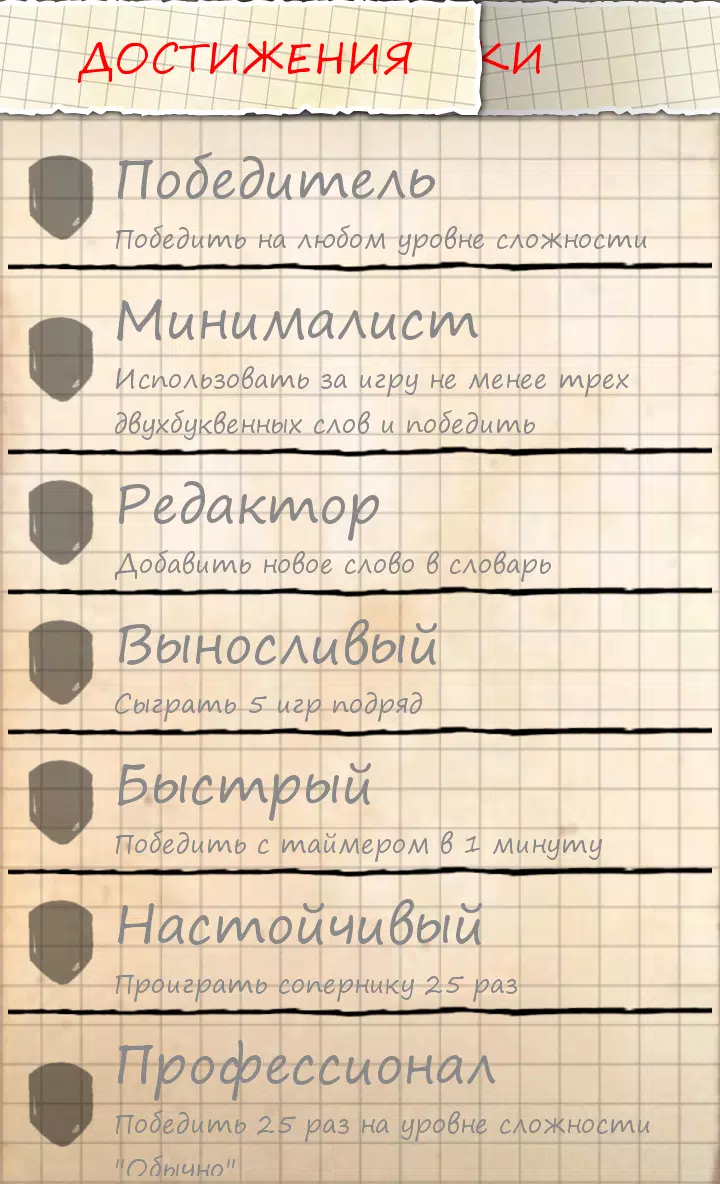 ДОСТИЖЕНИЯ КИ
Победитель
Победить на любом уровне сложности
Минималист
Использовать за игру не менее трех
двухбуквенных слов и победить
Редактор
Добавить новое слово в словарь
Выносливый
Сыграть 5 игр подряд
Быстрый
Победить с таймером в 1 минуту
Настойчивый
Проиграть сопернику 25 раз
Профессионал
Победить 25 раз на уровне сложности
"Обычно"